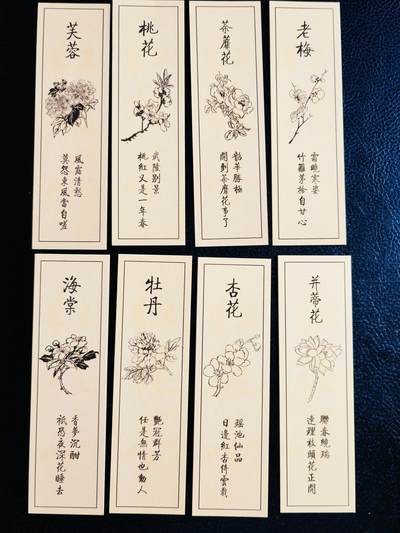 芙蓉
風露清愁
莫怨東風當自嗟
桃花
武陵別景
桃紅又是一年春
荼蘼花
韶華勝極
開到荼蘼花事了
老梅
霜曉寒姿
竹籬茅舍自甘心
海棠
香夢沉酣
祇恐夜深花睡去
牡丹
艷冠群芳
任是無情也動人
杏花
瑤池仙品
日邊紅杏倚雲栽
并蒂花
聯春繞瑞
連理枝頭花正開